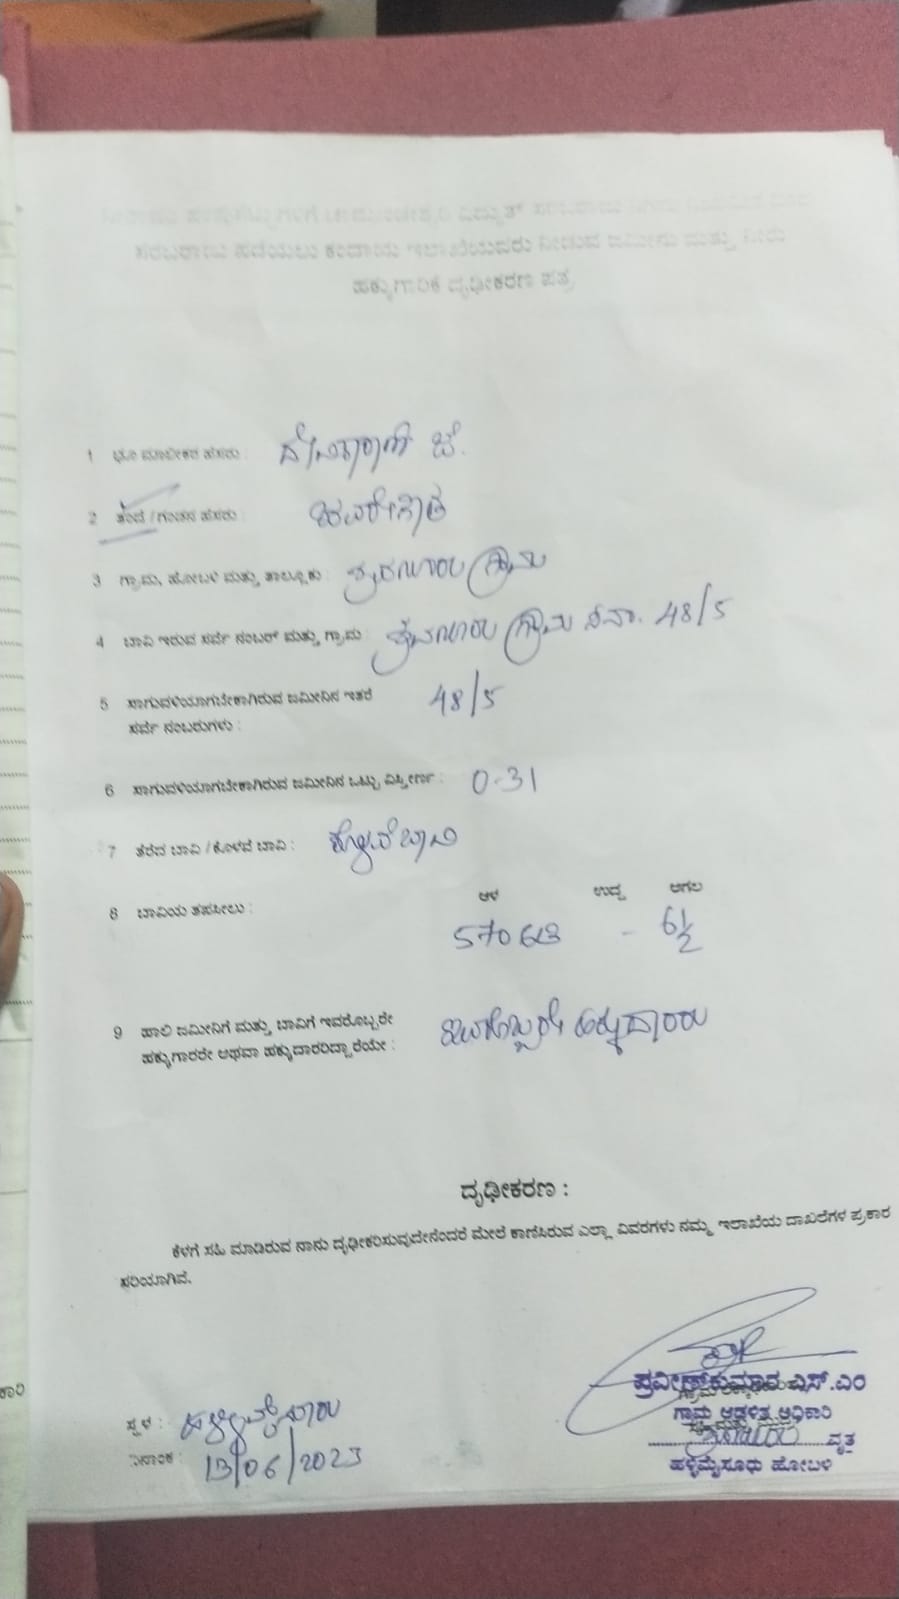 ಸರಬರಾಜು ಪಡೆಯಲು ಕಂದಾಯ ಇಲಾಖೆಯವರು ನೀಡುವ ಜಮೀನು ಮತ್ತು ನೀರು
ಹಕ್ಕುಗಾರಿಕೆ ದೃಢೀಕರಣ ಪತ್ರ
1 ಭೂ ಮಾಲೀಕರ ಹೆಸರು : ಜೆ.
2 ತಂದೆ / ಗಂಡನ ಹೆಸರು :
3 ಗ್ರಾಮ, ಹೋಬಳಿ ಮತ್ತು ತಾಲ್ಲೂಕು : ಗ್ರಾಮ
4 ಬಾವಿ ಇರುವ ಸರ್ವೆ ನಂಬರ್ ಮತ್ತು ಗ್ರಾಮ : ಗ್ರಾಮ ಸ.ನಂ. 48/5
5 ಸಾಗುವಳಿಯಾಗಬೇಕಾಗಿರುವ ಜಮೀನಿನ ಇತರೆ 48/5
ಸರ್ವೆ ನಂಬರುಗಳು :
6 ಸಾಗುವಳಿಯಾಗಬೇಕಾಗಿರುವ ಜಮೀನಿನ ಒಟ್ಟು ವಿಸ್ತೀರ್ಣ : 0-31
7 ತೆರೆದ ಬಾವಿ / ಕೊಳವೆ ಬಾವಿ : ಕೊಳವೆ ಬಾವಿ
ಆಳ ಉದ್ದ ಅಗಲ
8 ಬಾವಿಯ ತಪಸೀಲು : 570 ಅಡಿ - 6½
9 ಹಾಲಿ ಜಮೀನಿಗೆ ಮತ್ತು ಬಾವಿಗೆ ಇವರೊಬ್ಬರೇ ಇವರೊಬ್ಬರೇ ಹಕ್ಕುದಾರರು
ಹಕ್ಕುಗಾರರೇ ಅಥವಾ ಹಕ್ಕುದಾರರಿದ್ದಾರೆಯೇ :
ದೃಢೀಕರಣ :
ಕೆಳಗೆ ಸಹಿ ಮಾಡಿರುವ ನಾನು ದೃಢೀಕರಿಸುವುದೇನೆಂದರೆ ಮೇಲೆ ಕಾಣಿಸಿರುವ ಎಲ್ಲಾ ವಿವರಗಳು ನಮ್ಮ ಇಲಾಖೆಯ ದಾಖಲೆಗಳ ಪ್ರಕಾರ
ಸರಿಯಾಗಿವೆ.
ಪ್ರವೀಣ್‌ಕುಮಾರ ಎಸ್.ಎಂ
ಗ್ರಾಮ ಆಡಳಿತ ಅಧಿಕಾರಿ
ವೃತ್ತ
ಹಳ್ಳಿಮೈಸೂರು ಹೋಬಳಿ
ಸ್ಥಳ : ಹಳ್ಳಿಮೈಸೂರು
ದಿನಾಂಕ : 13/06/2023